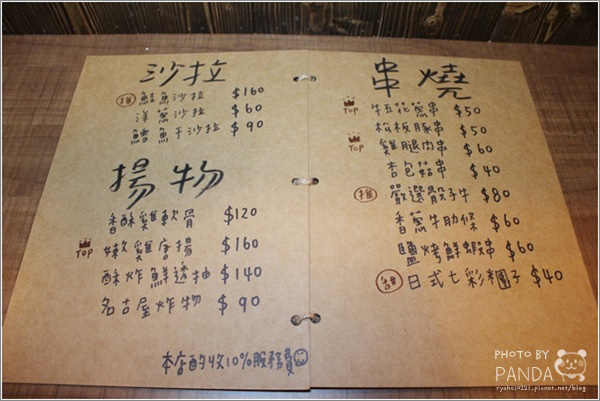 沙拉
推 鮭魚沙拉 $160
洋蔥沙拉 $60
鱈魚干沙拉 $90
揚物
香酥雞軟骨 $120
TOP 嫩雞唐揚 $160
酥炸鮮透抽 $140
名古屋炸物 $90
本店酌收10%服務費
串燒
TOP 牛五花蔥串 $50
松板豚串 $50
TOP 雞腿肉串 $60
杏包菇串 $40
推 嚴選骰子牛 $80
香蔥牛肋條 $60
鹽烤鮮蝦串 $60
日式七彩糰子 $40
PHOTO BY
PANDA
ryohei0221.pixnet.net/blog